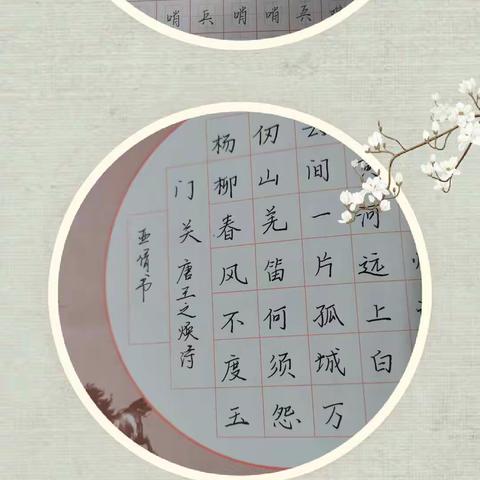 哨兵哨哨兵哨
河远上白
云间一片孤城万
仞山羌笛何须怨
杨柳春风不度玉
门关 唐王之焕诗
亚书